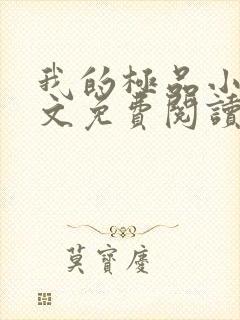 我的極品小
文免費閱讀
莫寶慶